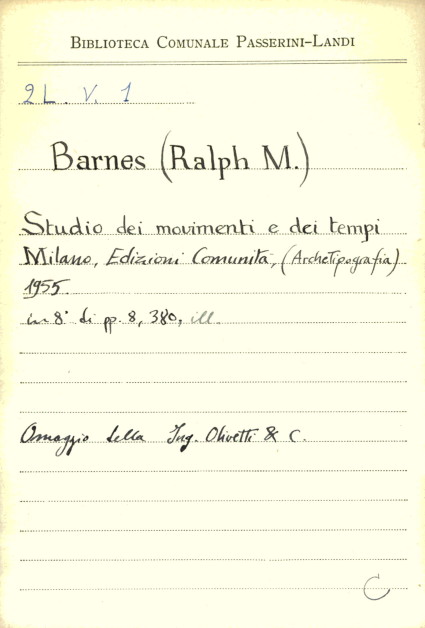 BIBLIOTECA COMUNALE PASSERINI-LANDI
2L. V. 1
Barnes (Ralph M.)
Studio dei movimenti e dei tempi
Milano, Edizioni Comunità, (Archetipografia)
1955.
in 8° di pp. 8, 380, ill.
Omaggio della Ing. Olivetti & C.
C